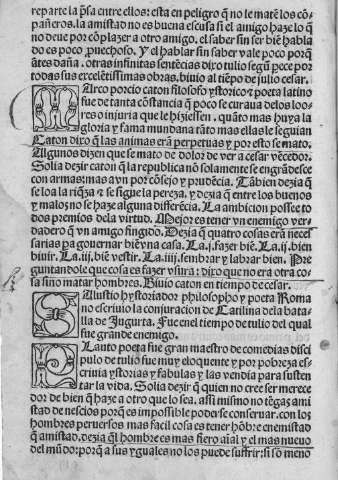 reparte la p̃sa entre ellos: esta en peligro q̃ no le matẽ los cõ-
pañeros. la amistad no es buena escusa si el amigo haze lo q̃
no deue por cõplazer a otro amigo. el saber sin ser biẽ habla
do es poco ꝓuechoso. Y el hablar sin saber vale poco porq̃
antes daña. otras infinitas sentẽcias dixo tulio segũ parece por
todas sus excelẽtissimas obras. biuio al tiẽpo de julio cesar.
Marco porcio caton filosofo ystorico ⁊ poeta latino
fue de tanta cõstancia q̃ poco se curaua delos loo-
res o injuria que le hiziessen. quãto mas huya la
gloria y fama mundana tãto mas ellas le seguian
Caton dixo q̃ las animas erã perpetuas y por esto se mato.
Algunos dizen que se mato de dolor de ver a cesar vẽcedor.
Solia dezir catõ q̃ la republica nõ solamente se engrãdesce
con armas: mas avn por cõsejo y prudẽcia. Tãbien dezia q̃
se loa la riq̃za ⁊ se sigue la pereza. y dezia q̃ entre los buenos
y malos no se haze alguna differẽcia. La ambicion possee to
dos premios dela virtud. Mejor es tener vn enemigo ver-
dadero q̃ vn amigo fingido. Dezia q̃ quatro cosas erã nece-
sarias pa gouernar biẽ vna casa. La .j. fazer biẽ. La .ij. bien
biuir. La .iij. biẽ vestir. La .iiij. sembrar y labrar bien. Pre
guntandole que cosa es fazer vsura: dixo que no era otra co-
sa sino matar hombres. Biuio caton en tiempo de cesar.
Salustio hystoriador philosopho y poeta Roma
no escriuio la conjuracion de Catilina dela bata-
lla de Jugurta. Fue enel tiempo de tulio del qual
fue grande enemigo.
Plauto poeta fue gran maestro de comedias disci
pulo de tulio fue muy eloquente y por pobreza es-
criuia ystorias y fabulas y las vendia para susten
tar la vida. Solia dezir q̃ quien no cree ser merece
dor de bien q̃ haze a otro que lo sea. assi mismo no tẽgas ami
stad de nescios porq̃ es impossible poder se conseruar. con los
hombres peruersos mas facil cosa es tener hõbre enemistad
q̃ amistad. dezia q̃l hombre es mas fiero aĩal y el mas nueuo
del mũdo: porq̃ a sus yguales no los puede suffrir: si sõ meno